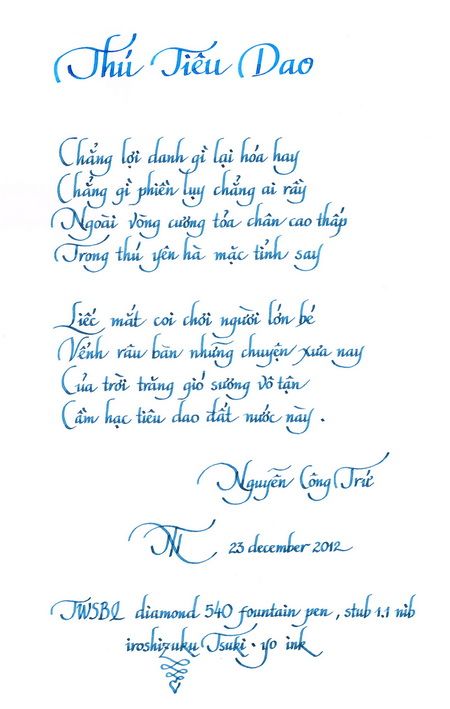 Thú Tiêu Dao
Chẳng lợi danh gì lại hóa hay
Chẳng gì phiền lụy chẳng ai rầy
Ngoài vòng cương tỏa chân cao thấp
Trong thú yên hà mặc tỉnh say
Liếc mắt coi chơi người lớn bé
Vểnh râu bàn những chuyện xưa nay
Của trời trăng gió sương vô tận
Cầm hạc tiêu dao đất nước này.
Nguyễn Công Trứ
23 december 2012
TWSBI diamond 540 fountain pen, stub 1.1 nib
iroshizuku Tsuki-yo ink